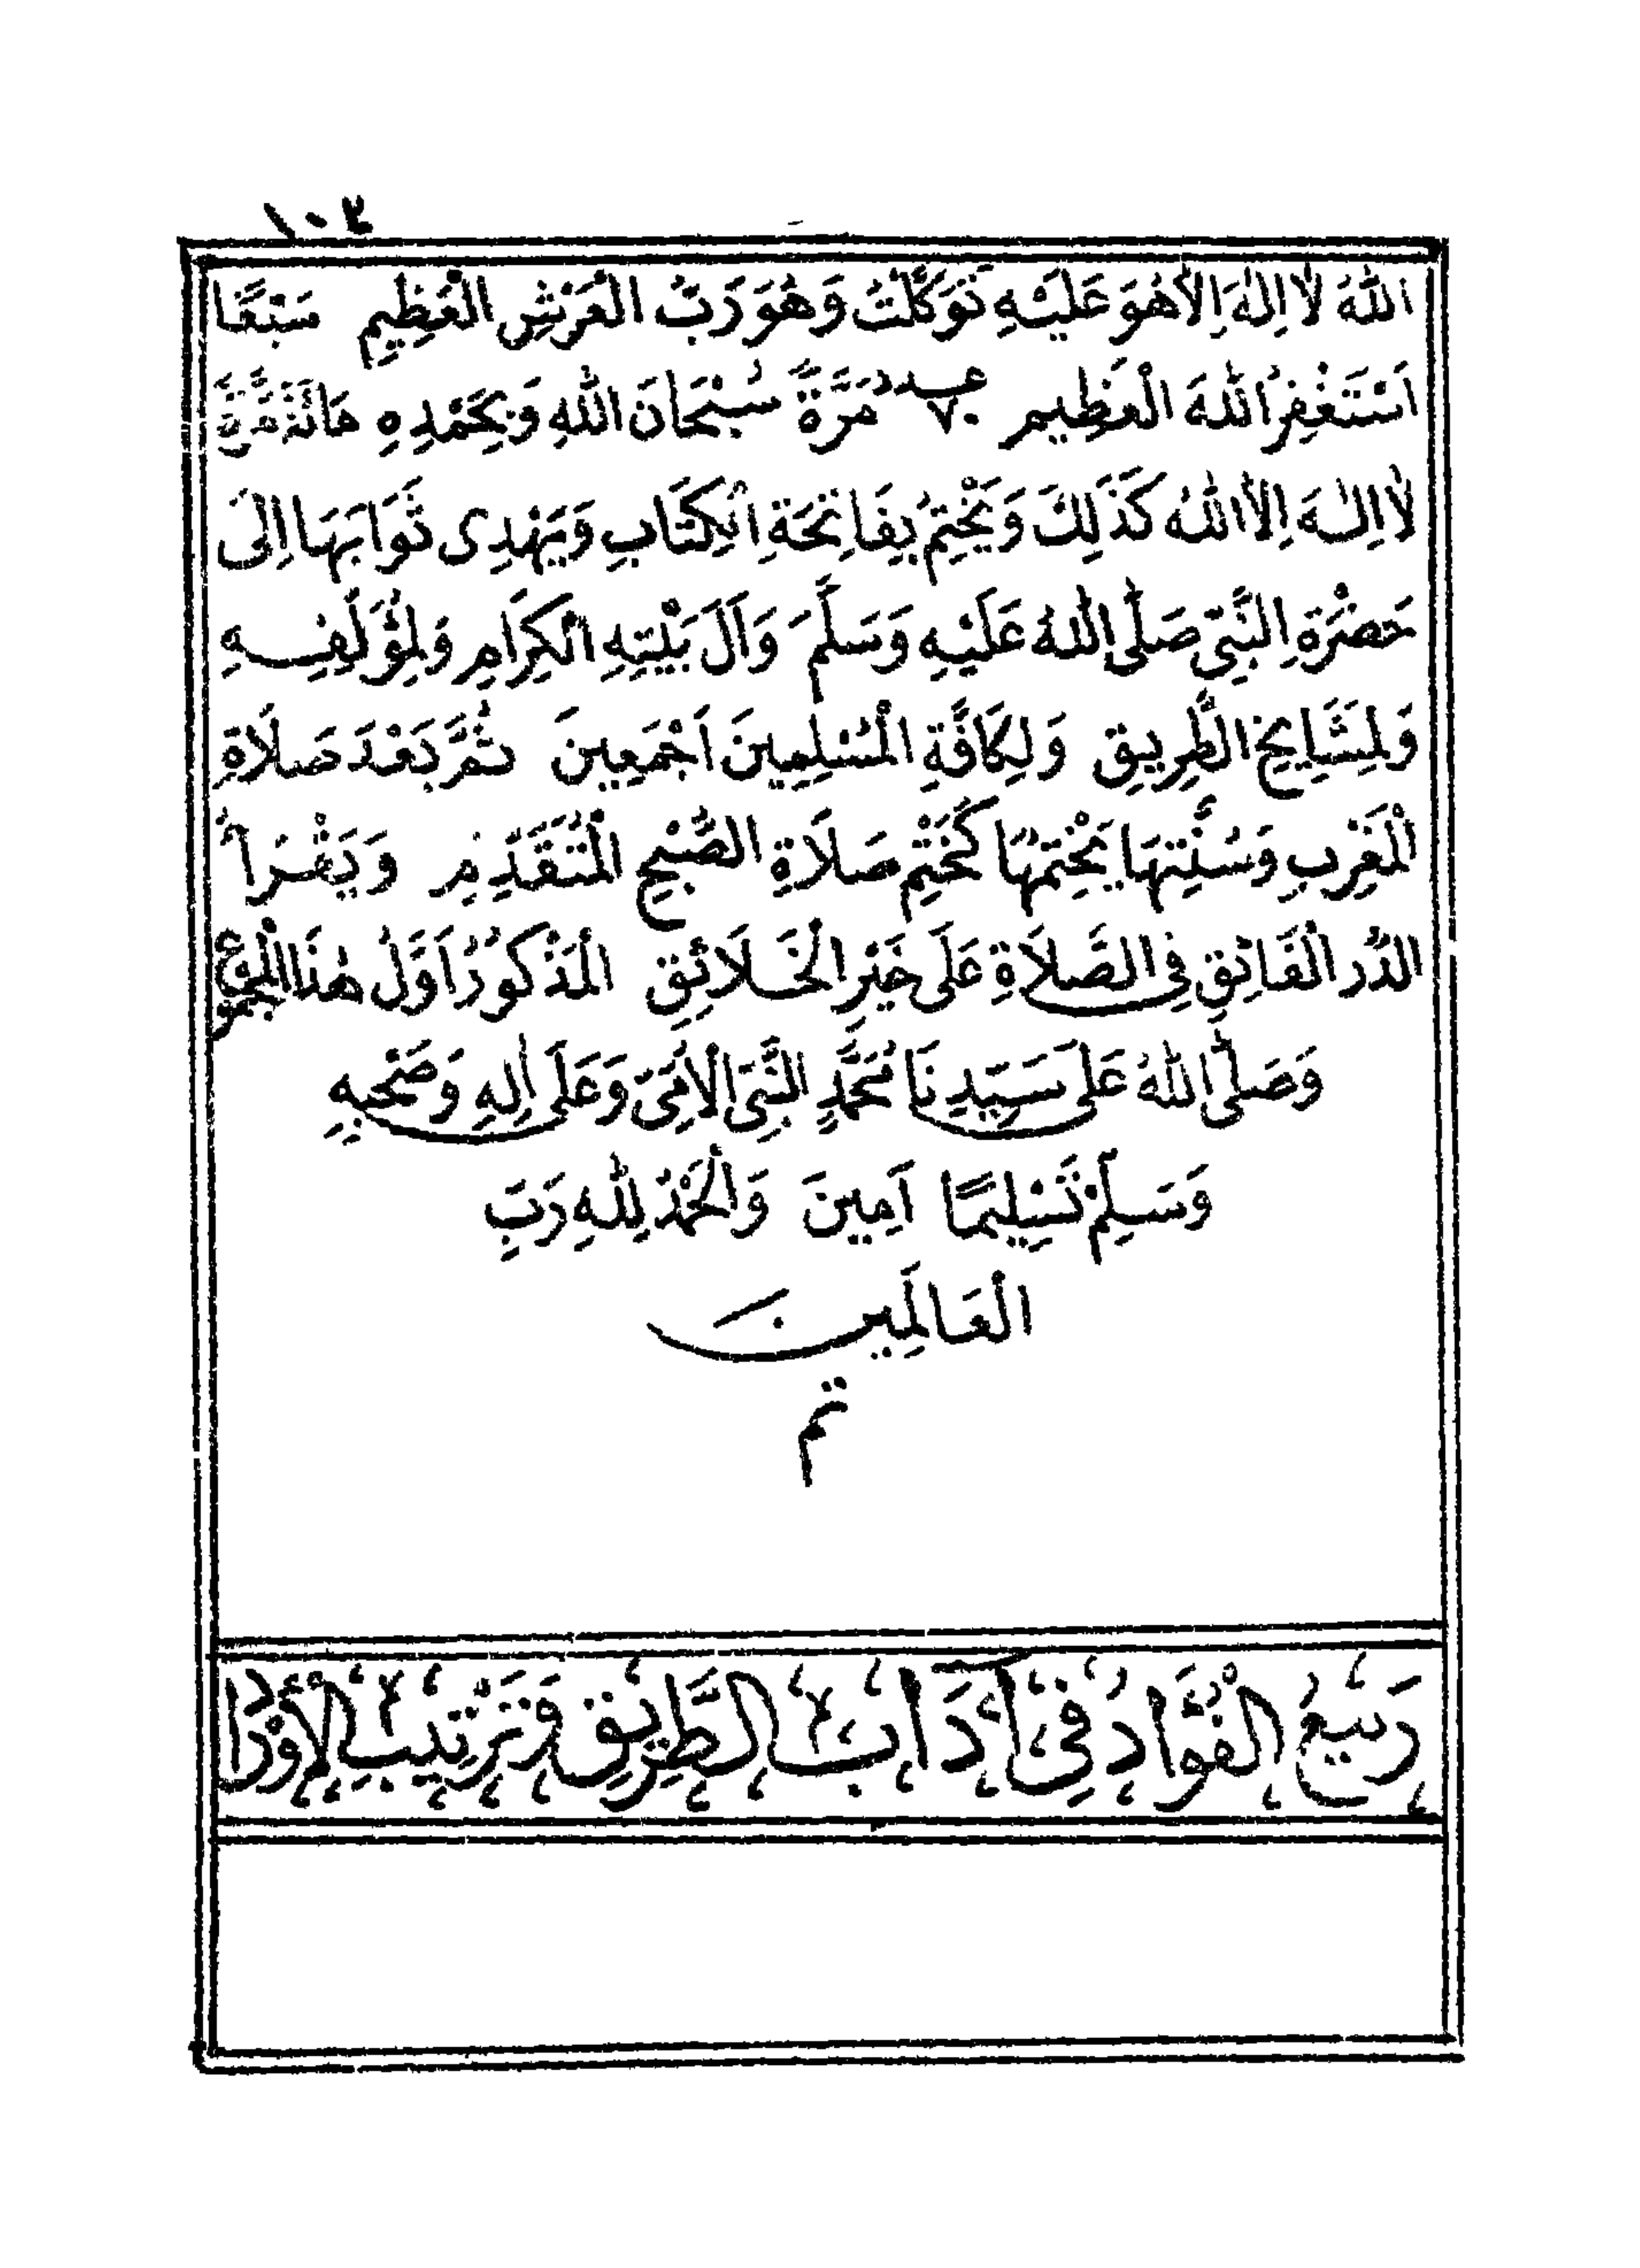 ١٠٣
اللهُ لَا اِلٰهَ اِلَّا هُوَ عَلَيْهِ تَوَكَّلْتُ وَهُوَ رَبُّ الْعَرْشِ الْعَظِيمِ سَبْعًا
اَسْتَغْفِرُ اللهَ الْعَظِيم عدد ٧٠ مَرَّةً سُبْحَانَ اللهِ وَبِحَمْدِهِ مَائَةَ مَرَّةٍ
لَا اِلٰهَ اِلَّا اللهُ كَذَلِكَ وَيَخْتِمُ بِفَاتِحَةِ الْكِتَابِ وَيَهْدِى ثَوَابَهَا اِلَى
حَضْرَةِ النَّبِيِّ صَلَّى اللهُ عَلَيْهِ وَسَلَّمَ وَآلَ بَيْتِهِ الْكِرَامِ وَلِمُؤَلِّفِهِ
وَلِمَشَايِخِ الطَّرِيقِ وَلِكَافَّةِ الْمُسْلِمِينَ اَجْمَعِينَ ثُمَّ بَعْدَ صَلَاةِ
الْمَغْرِبِ وَسُنَّتِهَا يَخْتِمُهَا كَخَتْمِ صَلَاةِ الصُّبْحِ الْمُتَقَدِّمِ وَيَقْرَأُ
الدُّرَ الْفَائِقِ فِى الصَّلَاةِ عَلَى خَيْرِ الْخَلَائِقِ الْمَذْكُورُ اَوَّلُ هٰذَا الْمَجْمُوعِ
وَصَلَّى اللهُ عَلَى سَيِّدِنَا مُحَمَّدٍ النَّبِيِّ الْاُمِّيِّ وَعَلَى اٰلِهِ وَصَحْبِهِ
وَسَلِّمْ تَسْلِيمًا آمِينَ وَالْحَمْدُ لِلّٰهِ رَبِّ
الْعَالَمِينَ
تم
رَبِيعُ الْفُؤَادُ فِى آدَابِ الطَّرِيقِ وَتَرْتِيبِ الْأَوْرَادِ